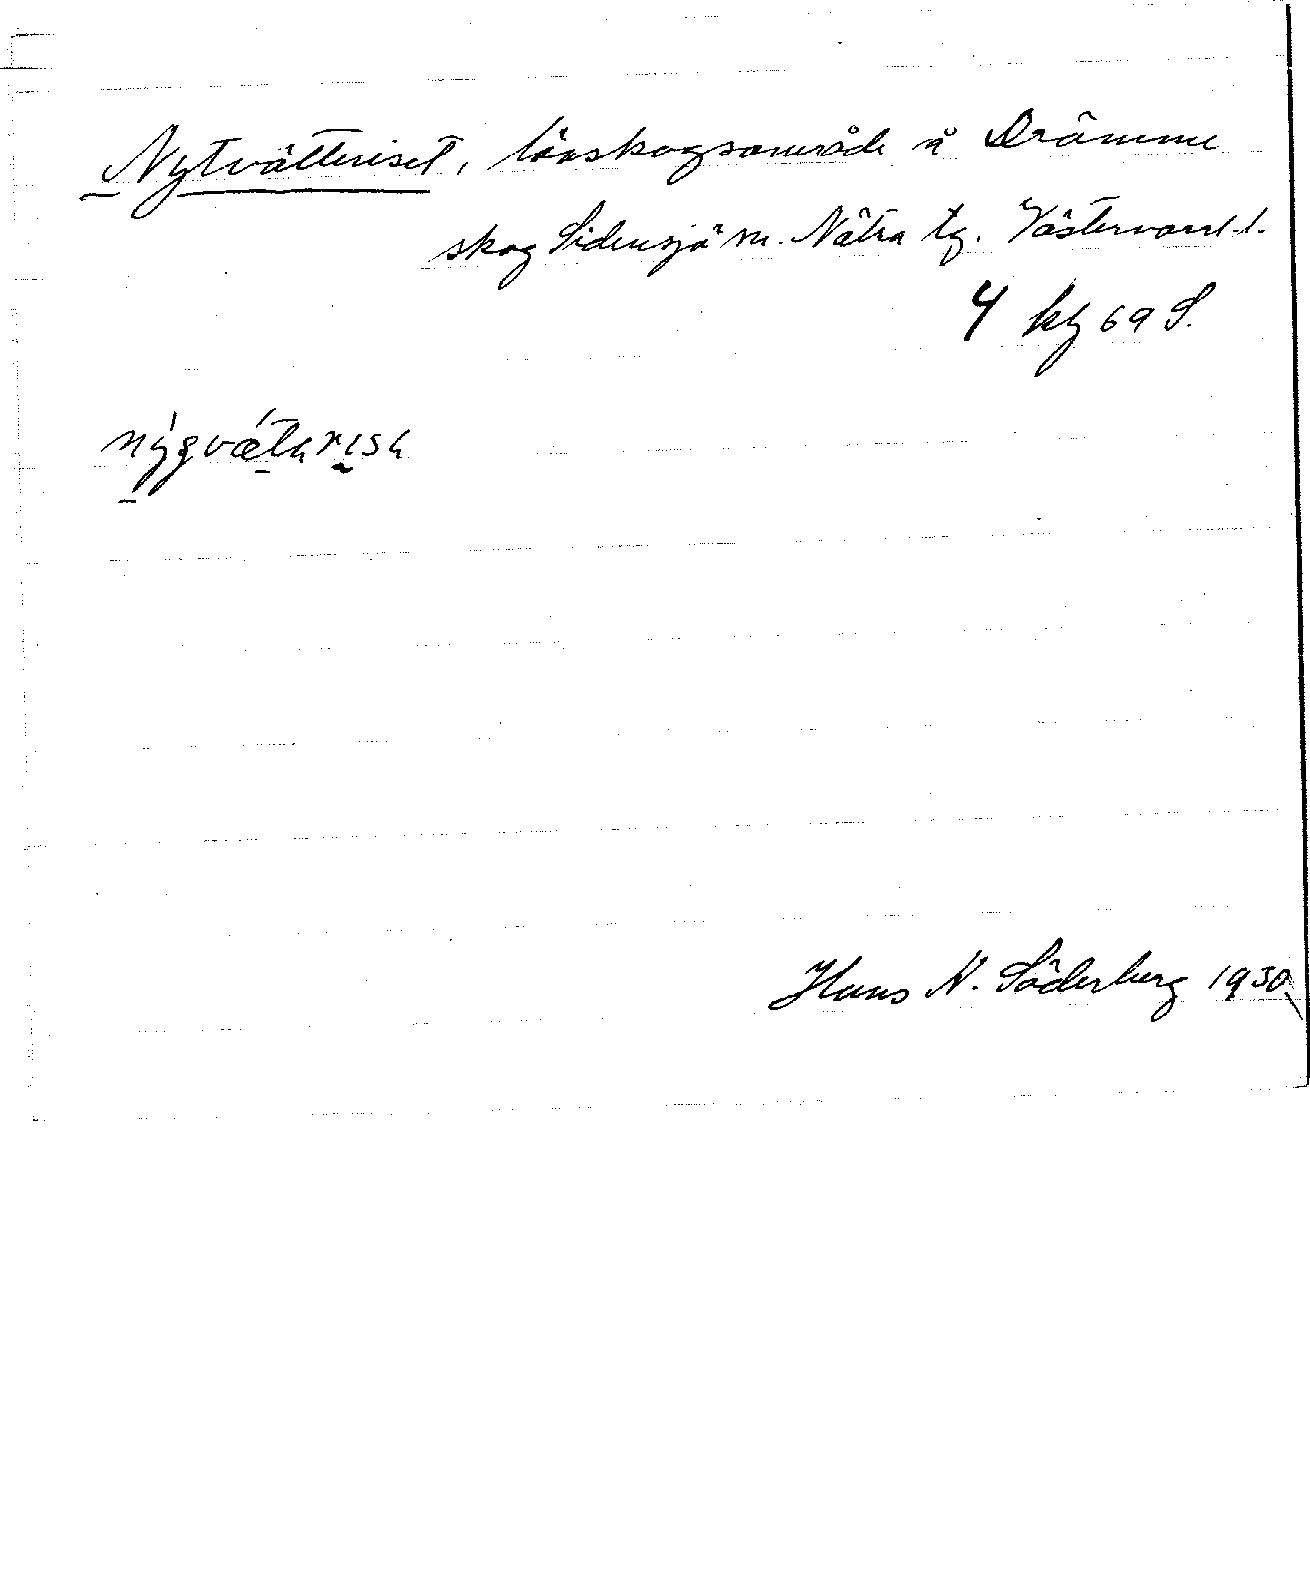 Nytvätteriset, lövskogsområde å Drömme
skog Sidensjö sn. Nätra tg. Västernorrl. l.
4 kg 69 S.
Hans N. Söderberg 1930